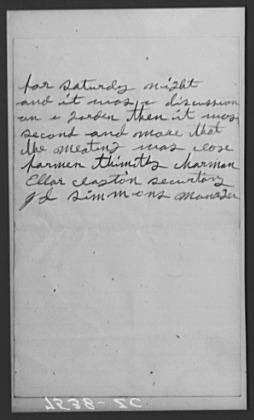 for saturdy night
and it was a discussion
on a garden then it was
second and move that
the meating was close
farmen thimothy charman
Ellar clayton securtary
J d simmons manager
7538-ZC